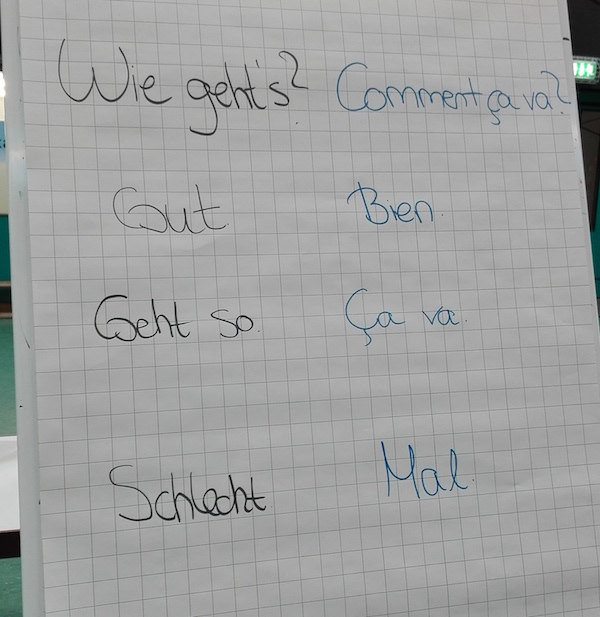 Wie geht's? Comment ça va?
Gut. Bien.
Geht so. Ça va.
Schlecht Mal.